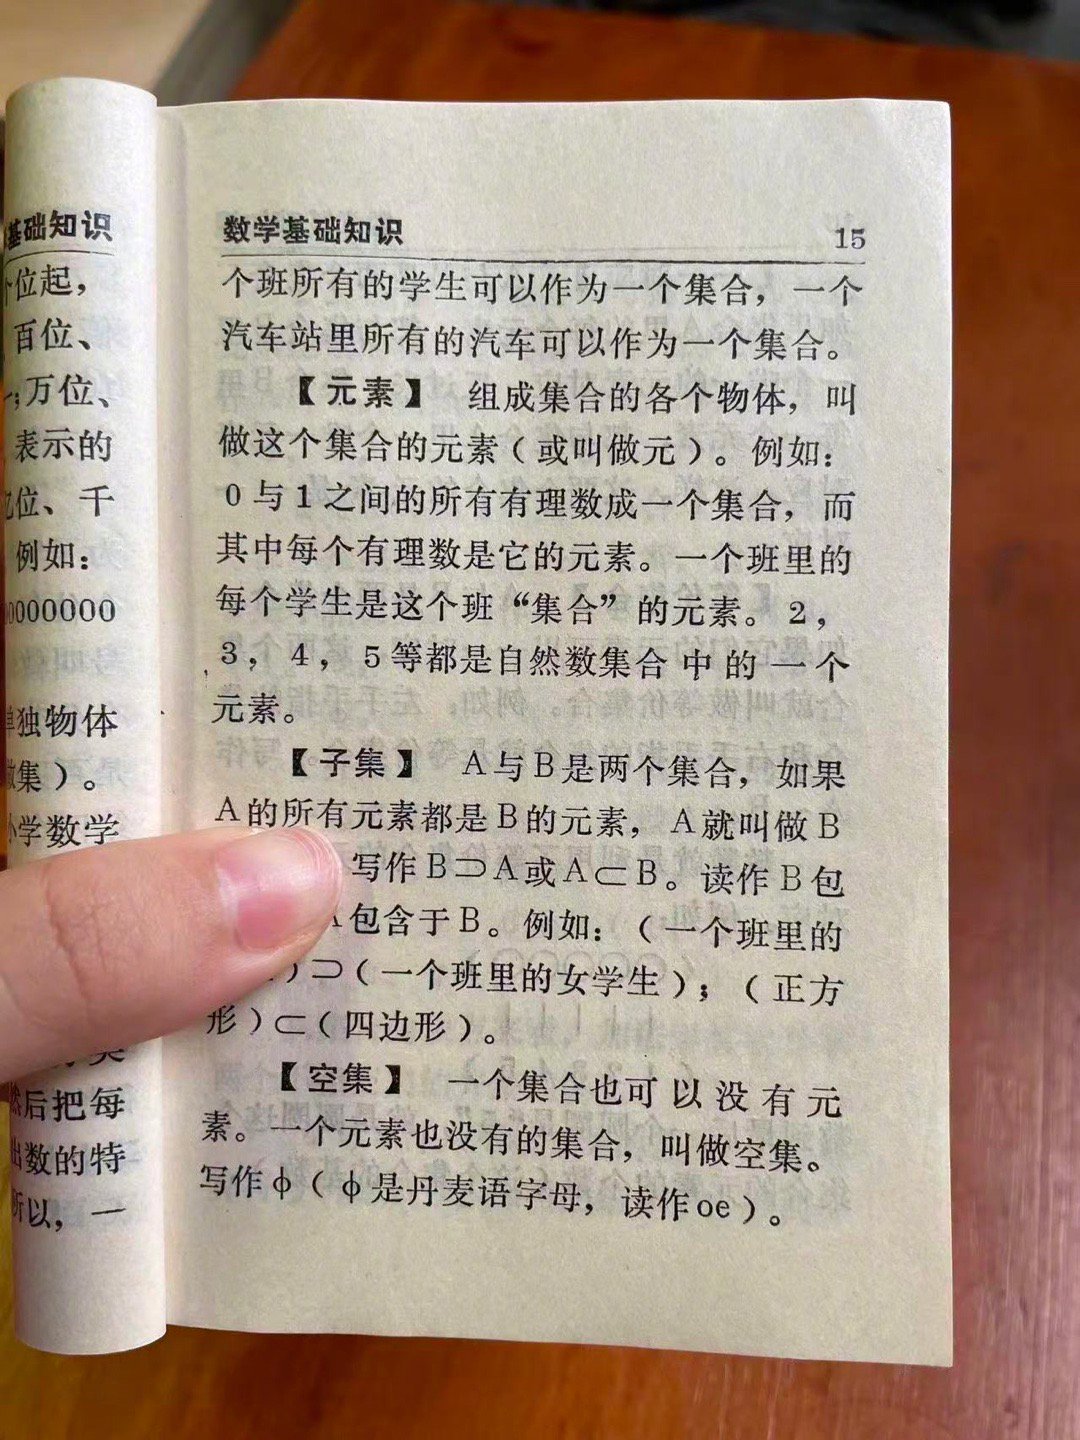 基础知识
个位起，
百位、
；万位、
表示的
亿位、千
例如：
0000000
单独物体
做集）。
小学数学
然后把每
出数的特
所以，一
数学基础知识 15
个班所有的学生可以作为一个集合，一个
汽车站里所有的汽车可以作为一个集合。
【元素】 组成集合的各个物体，叫
做这个集合的元素（或叫做元）。例如：
0与1之间的所有有理数成一个集合，而
其中每个有理数是它的元素。一个班里的
每个学生是这个班“集合”的元素。2，
3，4，5等都是自然数集合中的一个
元素。
【子集】 A与B是两个集合，如果
A的所有元素都是B的元素，A就叫做B
写作B⊃A或A⊂B。读作B包
A包含于B。例如：（一个班里的
）⊃（一个班里的女学生）；（正方
形）⊂（四边形）。
【空集】 一个集合也可以没有元
素。一个元素也没有的集合，叫做空集。
写作φ（φ是丹麦语字母，读作oe）。